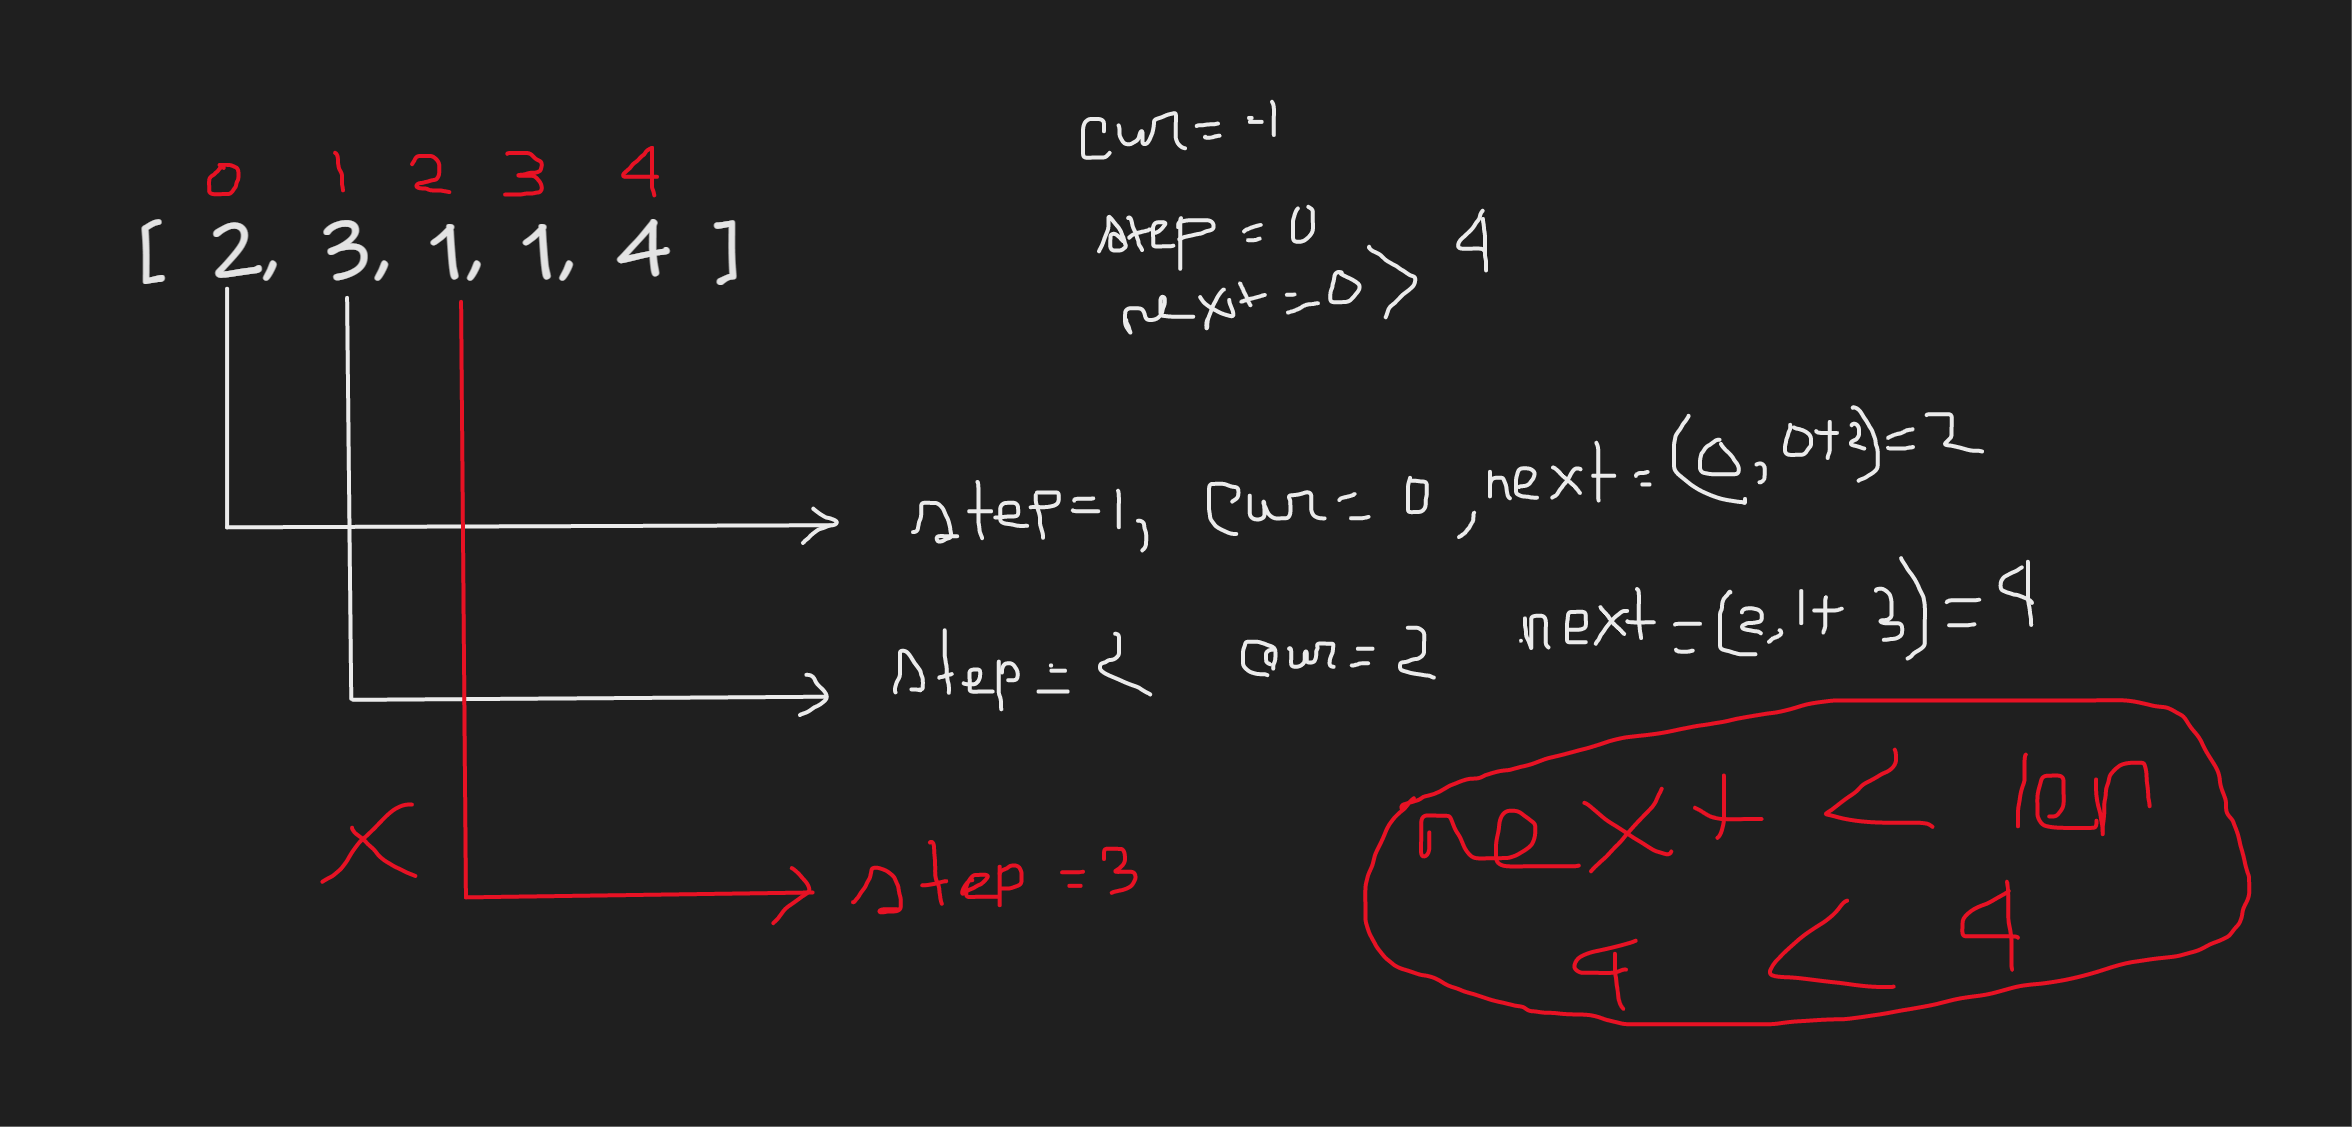 cur = -1
0 1 2 3 4
[ 2, 3, 1, 1, 4 ]
step = 0
next = 0 > 4
step=1, cur = 0, next = (0, 0+2) = 2
step = 2 cur = 2 next = (2, 1+3) = 4
x step = 3
next < len
4 < 4